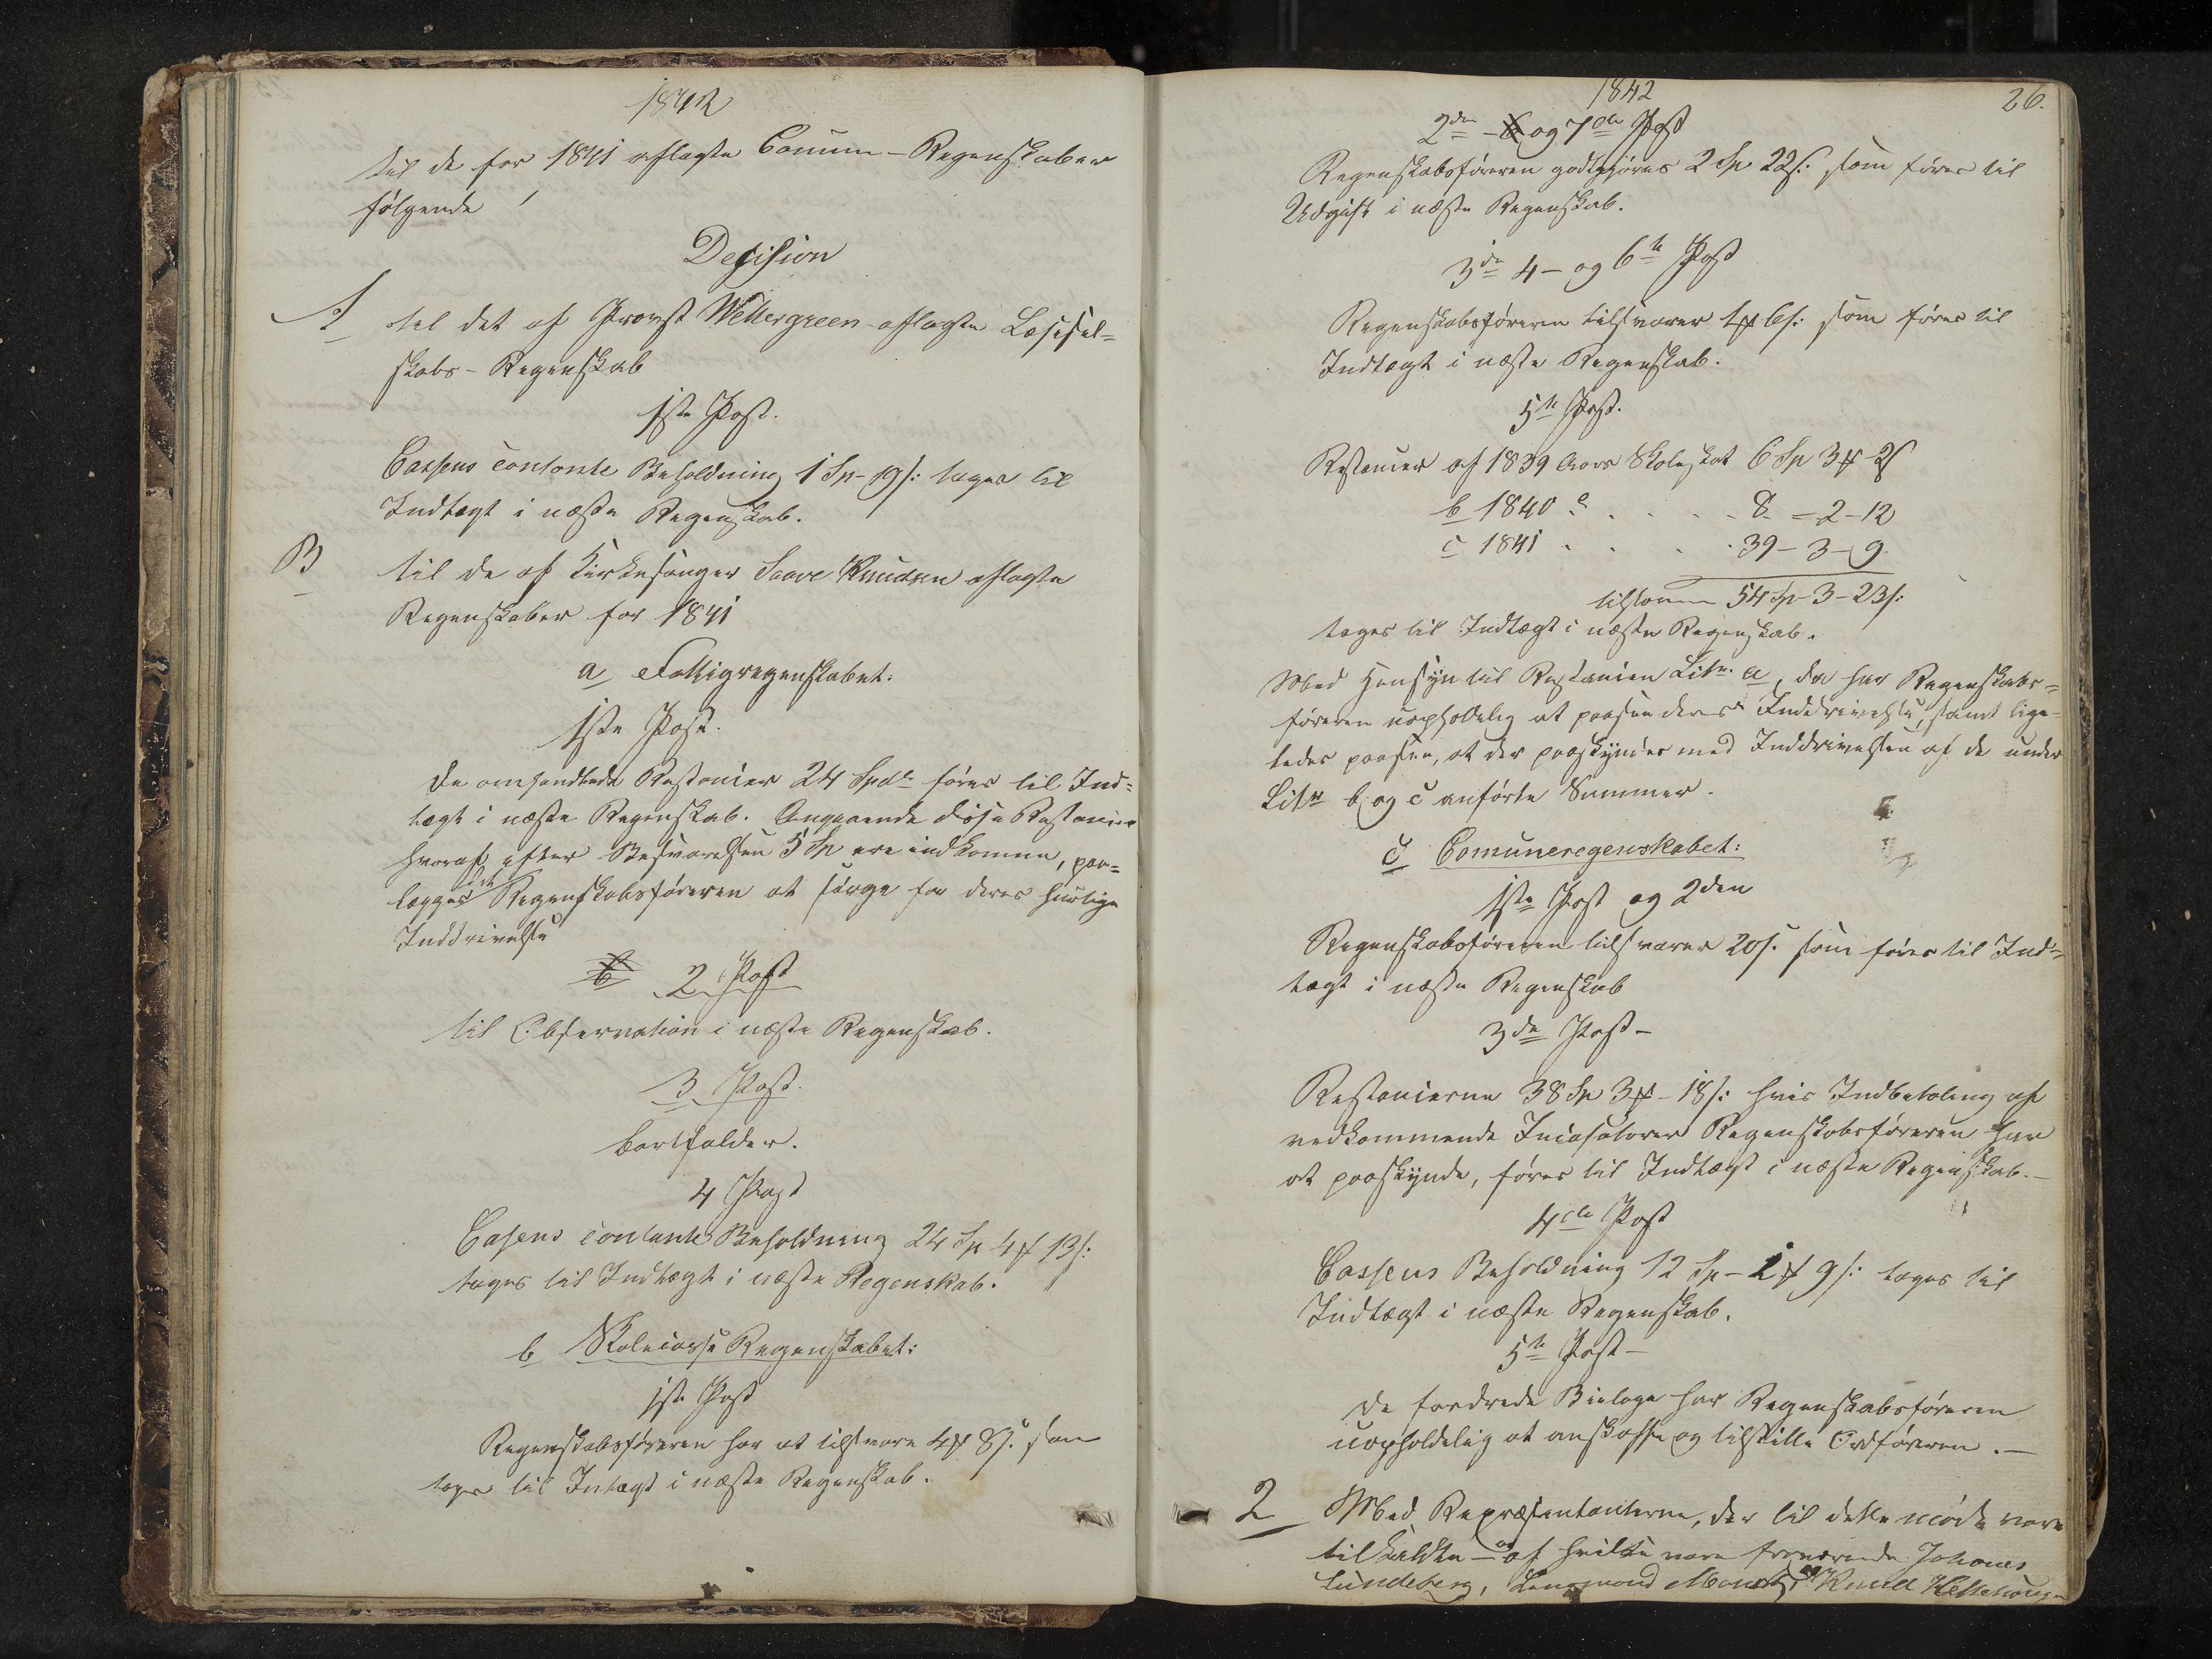 1842
til de for 1841 aflagte Comune-Regenskaber
følgende
Decision
A til det af Provst Wettergreen aflagte Læsesel=
skabs-Regenskab
1ste Post.
Cassens contante Beholdning 1 Sp - 9 s: tages til
Indtægt i næste Regenskab.
B til de af Kirkesanger Saave Knudsen aflagte
Regenskaber for 1841
a Fattigregenskabet.
1ste Post.
De omhandlede Restancier 24 Spdr føres til Ind=
tægt i næste Regenskab. Angaaende disse Restancier
hvoraf efter Besvarelsen 5 Sp ere indkomne, paa=
lægges det Regenskabsføreren at sørge for deres hurtige
Inddrivelse
b 2 Post
til Observation i næste Regenskab.
3 Post.
bortfalder.
4 Post
Casens contante Beholdning 24 Sp 4 ₰ 13 s:
tages til Indtægt i næste Regenskab.
b Skolecasse Regenskabet:
1ste Post
Regenskabsføreren har at tilsvare 4 ₰ 8 s. som
tages til Intægt i næste Regenskab.
1842
26.
2den - 6 og 7de Post
Regenskabsføreren godtgjøres 2 Sp 22 s: som føres til
Udgift i næste Regenskab.
3die 4 - og 6te Post
Regenskabsføreren tilsvarer 1 ₰ 6 s: som føres til
Indtægt i næste Regenskab.
5te Post.
Restancier af 1839 Aars Skoleskat 6 Sp 3 ₰ 2 s
b 1840 . . . . . 8 - 2 - 12
c 1841 . . . . 39 - 3 - 9
tilsammen 54 Sp - 3 - 23 s:
tages til Indtægt i næste Regenskab.
Med Hensyn til Restancien Litr. a, da har Regenskabs=
føreren uopholdelig at paasee deres Inddrivelse, samt lige=
ledes paasee, at der paaskyndes med Inddrivelsen af de under
Litr b og c anførte Summer.
c Comuneregenskabet:
1ste Post og 2den
Regenskabsføreren tilsvarer 20 s. som føres til Ind=
tægt i næste Regenskab
3die Post -
Restancierne 38 Sp 3 ₰ - 18 s: hvis Indbetaling af
vedkommende Incasatorer Regenskabsføreren har
at paaskynde, føres til Indtægt i næste Regenskab. -
4de Post
Cassens Beholdning 12 Sp - 2 ₰ 9 s: tages til
Indtægt i næste Regenskab.
5te Post -
De fordrede Bielage har Regenskabsføreren
uopholdelig at anskaffe og tilstille Ordføreren. -
2 Med Repræsentanterne, der til dette møde vare
tilkaldte - og af hvilke vare fremmøde Johanes
Lundeberg, Lensmand Knud